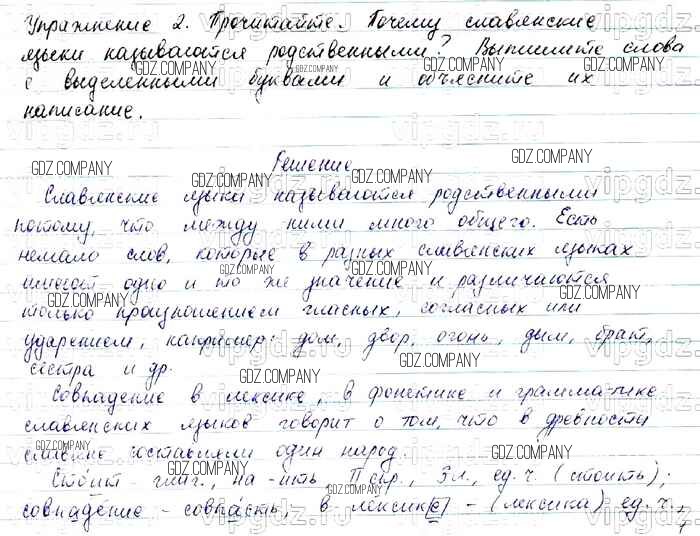 Упражнение 2. Прочитайте. Почему славянские
языки называются родственными? Выпишите слова
с выделенными буквами и объясните их
написание.
Решение
Славянские языки называются родственными
потому, что между ними много общего. Есть
немало слов, которые в разных славянских языках
имеют одно и то же значение и различаются
только произношением гласных, согласных или
ударением, например: дом, двор, огонь, дым, брат,
сестра и др.
Совпадение в лексике, в фонетике и грамматике
славянских языков говорит о том, что в древности
славяне составляли один народ.
Стоит - глаг., на -ить II спр., 3 л., ед. ч. (стоить);
совпадение - совпасть; в лексик[е] - (лексика) ед. ч.
GDZ.COMPANY
vipgdz.ru